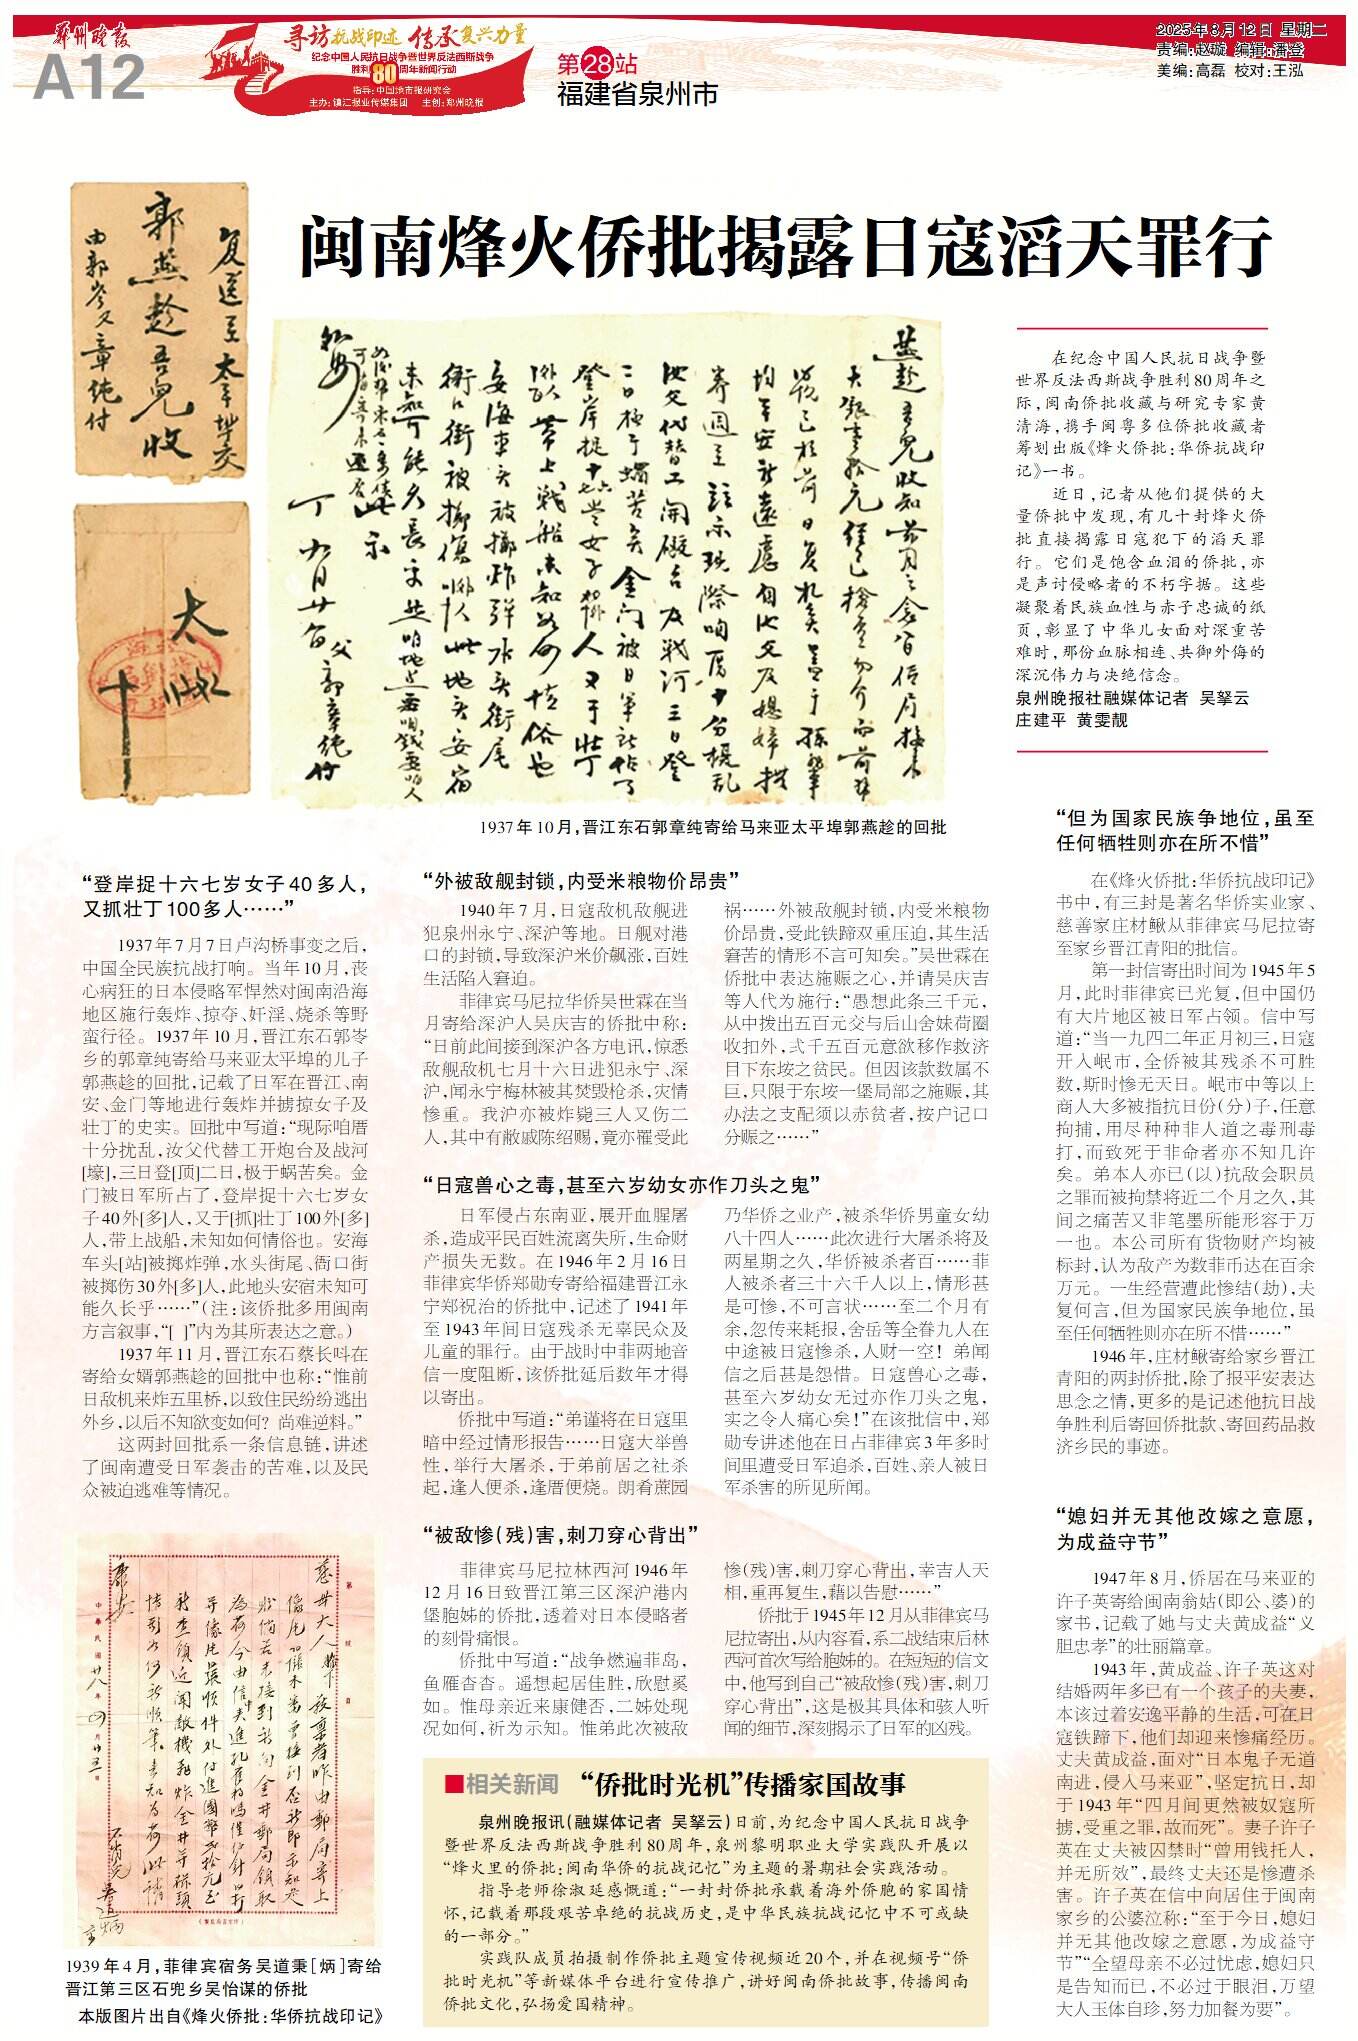 郑州晚报
A12
寻访抗战印迹 传承复兴力量
纪念中国人民抗日战争暨世界反法西斯战争
胜利80周年新闻行动
指导:中国地市报研究会
主办:镇江报业传媒集团 主创:郑州晚报
第28站
福建省泉州市
2025年8月12日 星期二
责编:赵璇 编辑:潘登
美编:高磊 校对:王泓
闽南烽火侨批揭露日寇滔天罪行
郭燕趁吾儿收
太平
由郭岑又章纯付
1937年10月,晋江东石郭章纯寄给马来亚太平埠郭燕趁的回批
在纪念中国人民抗日战争暨
世界反法西斯战争胜利80周年之
际,闽南侨批收藏与研究专家黄
清海,携手闽粤多位侨批收藏者
筹划出版《烽火侨批:华侨抗战印
记》一书。
近日,记者从他们提供的大
量侨批中发现,有几十封烽火侨
批直接揭露日寇犯下的滔天罪
行。它们是饱含血泪的侨批,亦
是声讨侵略者的不朽字据。这些
凝聚着民族血性与赤子忠诚的纸
页,彰显了中华儿女面对深重苦
难时,那份血脉相连、共御外侮的
深沉伟力与决绝信念。
泉州晚报社融媒体记者 吴拏云
庄建平 黄雯靓
“登岸捉十六七岁女子40多人,
又抓壮丁100多人……”
1937年7月7日卢沟桥事变之后,
中国全民族抗战打响。当年10月,丧
心病狂的日本侵略军悍然对闽南沿海
地区施行轰炸、掠夺、奸淫、烧杀等野
蛮行径。1937年10月,晋江东石郭岑
乡的郭章纯寄给马来亚太平埠的儿子
郭燕趁的回批,记载了日军在晋江、南
安、金门等地进行轰炸并掳掠女子及
壮丁的史实。回批中写道:“现际咱厝
十分扰乱,汝父代替工开炮台及战河
[壕],三日登[顶]二日,极于蜗苦矣。金
门被日军所占了,登岸捉十六七岁女
子40外[多]人,又于[抓]壮丁100外[多]
人,带上战船,未知如何情俗也。安海
车头[站]被掷炸弹,水头街尾、衙口街
被掷伤30外[多]人,此地头安宿未知可
能久长乎……”(注:该侨批多用闽南
方言叙事,“[ ]”内为其所表达之意。)
1937年11月,晋江东石蔡长呌在
寄给女婿郭燕趁的回批中也称:“惟前
日敌机来炸五里桥,以致住民纷纷逃出
外乡,以后不知欲变如何?尚难逆料。”
这两封回批系一条信息链,讲述
了闽南遭受日军袭击的苦难,以及民
众被迫逃难等情况。
1939年4月,菲律宾宿务吴道秉[炳]寄给
晋江第三区石兜乡吴怡谋的侨批
本版图片出自《烽火侨批:华侨抗战印记》
“外被敌舰封锁,内受米粮物价昂贵”
1940年7月,日寇敌机敌舰进
犯泉州永宁、深沪等地。日舰对港
口的封锁,导致深沪米价飙涨,百姓
生活陷入窘迫。
菲律宾马尼拉华侨吴世霖在当
月寄给深沪人吴庆吉的侨批中称:
“日前此间接到深沪各方电讯,惊悉
敌舰敌机七月十六日进犯永宁、深
沪,闻永宁梅林被其焚毁枪杀,灾情
惨重。我沪亦被炸毙三人又伤二
人,其中有敝戚陈绍赐,竟亦罹受此
祸……外被敌舰封锁,内受米粮物
价昂贵,受此铁蹄双重压迫,其生活
窘苦的情形不言可知矣。”吴世霖在
侨批中表达施赈之心,并请吴庆吉
等人代为施行:“愚想此条三千元,
从中拨出五百元交与后山舍妹荷圈
收扣外,弍千五百元意欲移作救济
目下东垵之贫民。但因该款数属不
巨,只限于东垵一堡局部之施赈,其
办法之支配须以赤贫者,按户记口
分赈之……”
“日寇兽心之毒,甚至六岁幼女亦作刀头之鬼”
日军侵占东南亚,展开血腥屠
杀,造成平民百姓流离失所,生命财
产损失无数。在1946年2月16日
菲律宾华侨郑勋专寄给福建晋江永
宁郑祝治的侨批中,记述了1941年
至1943年间日寇残杀无辜民众及
儿童的罪行。由于战时中菲两地音
信一度阻断,该侨批延后数年才得
以寄出。
侨批中写道:“弟谨将在日寇里
暗中经过情形报告……日寇大举兽
性,举行大屠杀,于弟前居之社杀
起,逢人便杀,逢厝便烧。朗肴蔗园
乃华侨之业产,被杀华侨男童女幼
八十四人……此次进行大屠杀将及
两星期之久,华侨被杀者百……菲
人被杀者三十六千人以上,情形甚
是可惨,不可言状……至二个月有
余,忽传来耗报,舍岳等全眷九人在
中途被日寇惨杀,人财一空!弟闻
信之后甚是怨惜。日寇兽心之毒,
甚至六岁幼女无过亦作刀头之鬼,
实之令人痛心矣!”在该批信中,郑
勋专讲述他在日占菲律宾3年多时
间里遭受日军追杀,百姓、亲人被日
军杀害的所见所闻。
“被敌惨(残)害,刺刀穿心背出”
菲律宾马尼拉林西河1946年
12月16日致晋江第三区深沪港内
堡胞姊的侨批,透着对日本侵略者
的刻骨痛恨。
侨批中写道:“战争燃遍菲岛,
鱼雁杳杳。遥想起居佳胜,欣慰奚
如。惟母亲近来康健否,二姊处现
况如何,祈为示知。惟弟此次被敌
惨(残)害,刺刀穿心背出,幸吉人天
相,重再复生,藉以告慰……”
侨批于1945年12月从菲律宾马
尼拉寄出,从内容看,系二战结束后林
西河首次写给胞姊的。在短短的信文
中,他写到自己“被敌惨(残)害,刺刀
穿心背出”,这是极其具体和骇人听
闻的细节,深刻揭示了日军的凶残。
■相关新闻 “侨批时光机”传播家国故事
泉州晚报讯(融媒体记者 吴拏云)日前,为纪念中国人民抗日战争
暨世界反法西斯战争胜利80周年,泉州黎明职业大学实践队开展以
“烽火里的侨批:闽南华侨的抗战记忆”为主题的暑期社会实践活动。
指导老师徐淑延感慨道:“一封封侨批承载着海外侨胞的家国情
怀,记载着那段艰苦卓绝的抗战历史,是中华民族抗战记忆中不可或缺
的一部分。”
实践队成员拍摄制作侨批主题宣传视频近20个,并在视频号“侨
批时光机”等新媒体平台进行宣传推广,讲好闽南侨批故事,传播闽南
侨批文化,弘扬爱国精神。
“但为国家民族争地位,虽至
任何牺牲则亦在所不惜”
在《烽火侨批:华侨抗战印记》
书中,有三封是著名华侨实业家、
慈善家庄材鳅从菲律宾马尼拉寄
至家乡晋江青阳的批信。
第一封信寄出时间为1945年5
月,此时菲律宾已光复,但中国仍
有大片地区被日军占领。信中写
道:“当一九四二年正月初三,日寇
开入岷市,全侨被其残杀不可胜
数,斯时惨无天日。岷市中等以上
商人大多被指抗日份(分)子,任意
拘捕,用尽种种非人道之毒刑毒
打,而致死于非命者亦不知几许
矣。弟本人亦已(以)抗敌会职员
之罪而被拘禁将近二个月之久,其
间之痛苦又非笔墨所能形容于万
一也。本公司所有货物财产均被
标封,认为敌产为数菲币达在百余
万元。一生经营遭此惨结(劫),夫
复何言,但为国家民族争地位,虽
至任何牺牲则亦在所不惜……”
1946年,庄材鳅寄给家乡晋江
青阳的两封侨批,除了报平安表达
思念之情,更多的是记述他抗日战
争胜利后寄回侨批款、寄回药品救
济乡民的事迹。
“媳妇并无其他改嫁之意愿,
为成益守节”
1947年8月,侨居在马来亚的
许子英寄给闽南翁姑(即公、婆)的
家书,记载了她与丈夫黄成益“义
胆忠孝”的壮丽篇章。
1943年,黄成益、许子英这对
结婚两年多已有一个孩子的夫妻,
本该过着安逸平静的生活,可在日
寇铁蹄下,他们却迎来惨痛经历。
丈夫黄成益,面对“日本鬼子无道
南进,侵入马来亚”,坚定抗日,却
于1943年“四月间更然被奴寇所
掳,受重之罪,故而死”。妻子许子
英在丈夫被囚禁时“曾用钱托人,
并无所效”,最终丈夫还是惨遭杀
害。许子英在信中向居住于闽南
家乡的公婆泣称:“至于今日,媳妇
并无其他改嫁之意愿,为成益守
节”“全望母亲不必过忧虑,媳妇只
是告知而已,不必过于眼泪,万望
大人玉体自珍,努力加餐为要”。